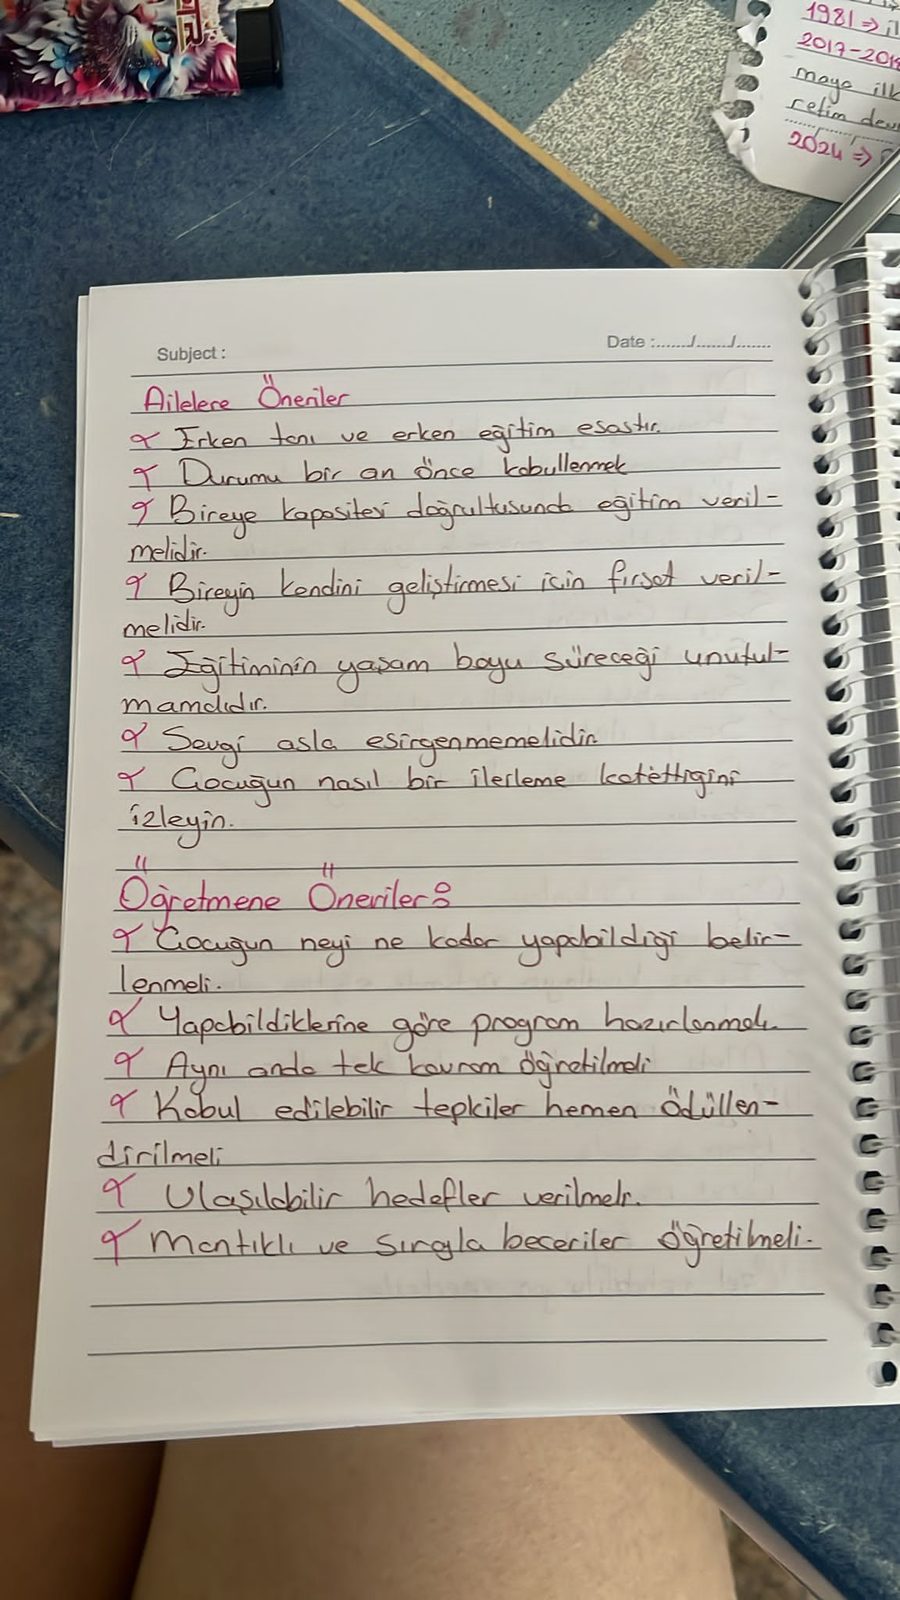 1981 => il
2017-201
maya ilk
retim dev
2024 =>
Subject :
Date :....../....../.......
Ailelere Öneriler
Erken tanı ve erken eğitim esastır.
Durumu bir an önce kabullenmek
Bireye kapasitesi doğrultusunda eğitim veril-
melidir.
Bireyin kendini geliştirmesi için fırsat veril-
melidir.
Eğitiminin yaşam boyu süreceği unutul-
mamalıdır.
Sevgi asla esirgenmemelidir.
Çocuğun nasıl bir ilerleme katettiğini
izleyin.
Öğretmene Öneriler:
Çocuğun neyi ne kadar yapabildiği belir-
lenmeli.
Yapabildiklerine göre program hazırlanmalı.
Aynı anda tek kavram öğretilmeli
Kabul edilebilir tepkiler hemen ödüllen-
dirilmeli
Ulaşılabilir hedefler verilmeli.
Mantıklı ve sırayla beceriler öğretilmeli.